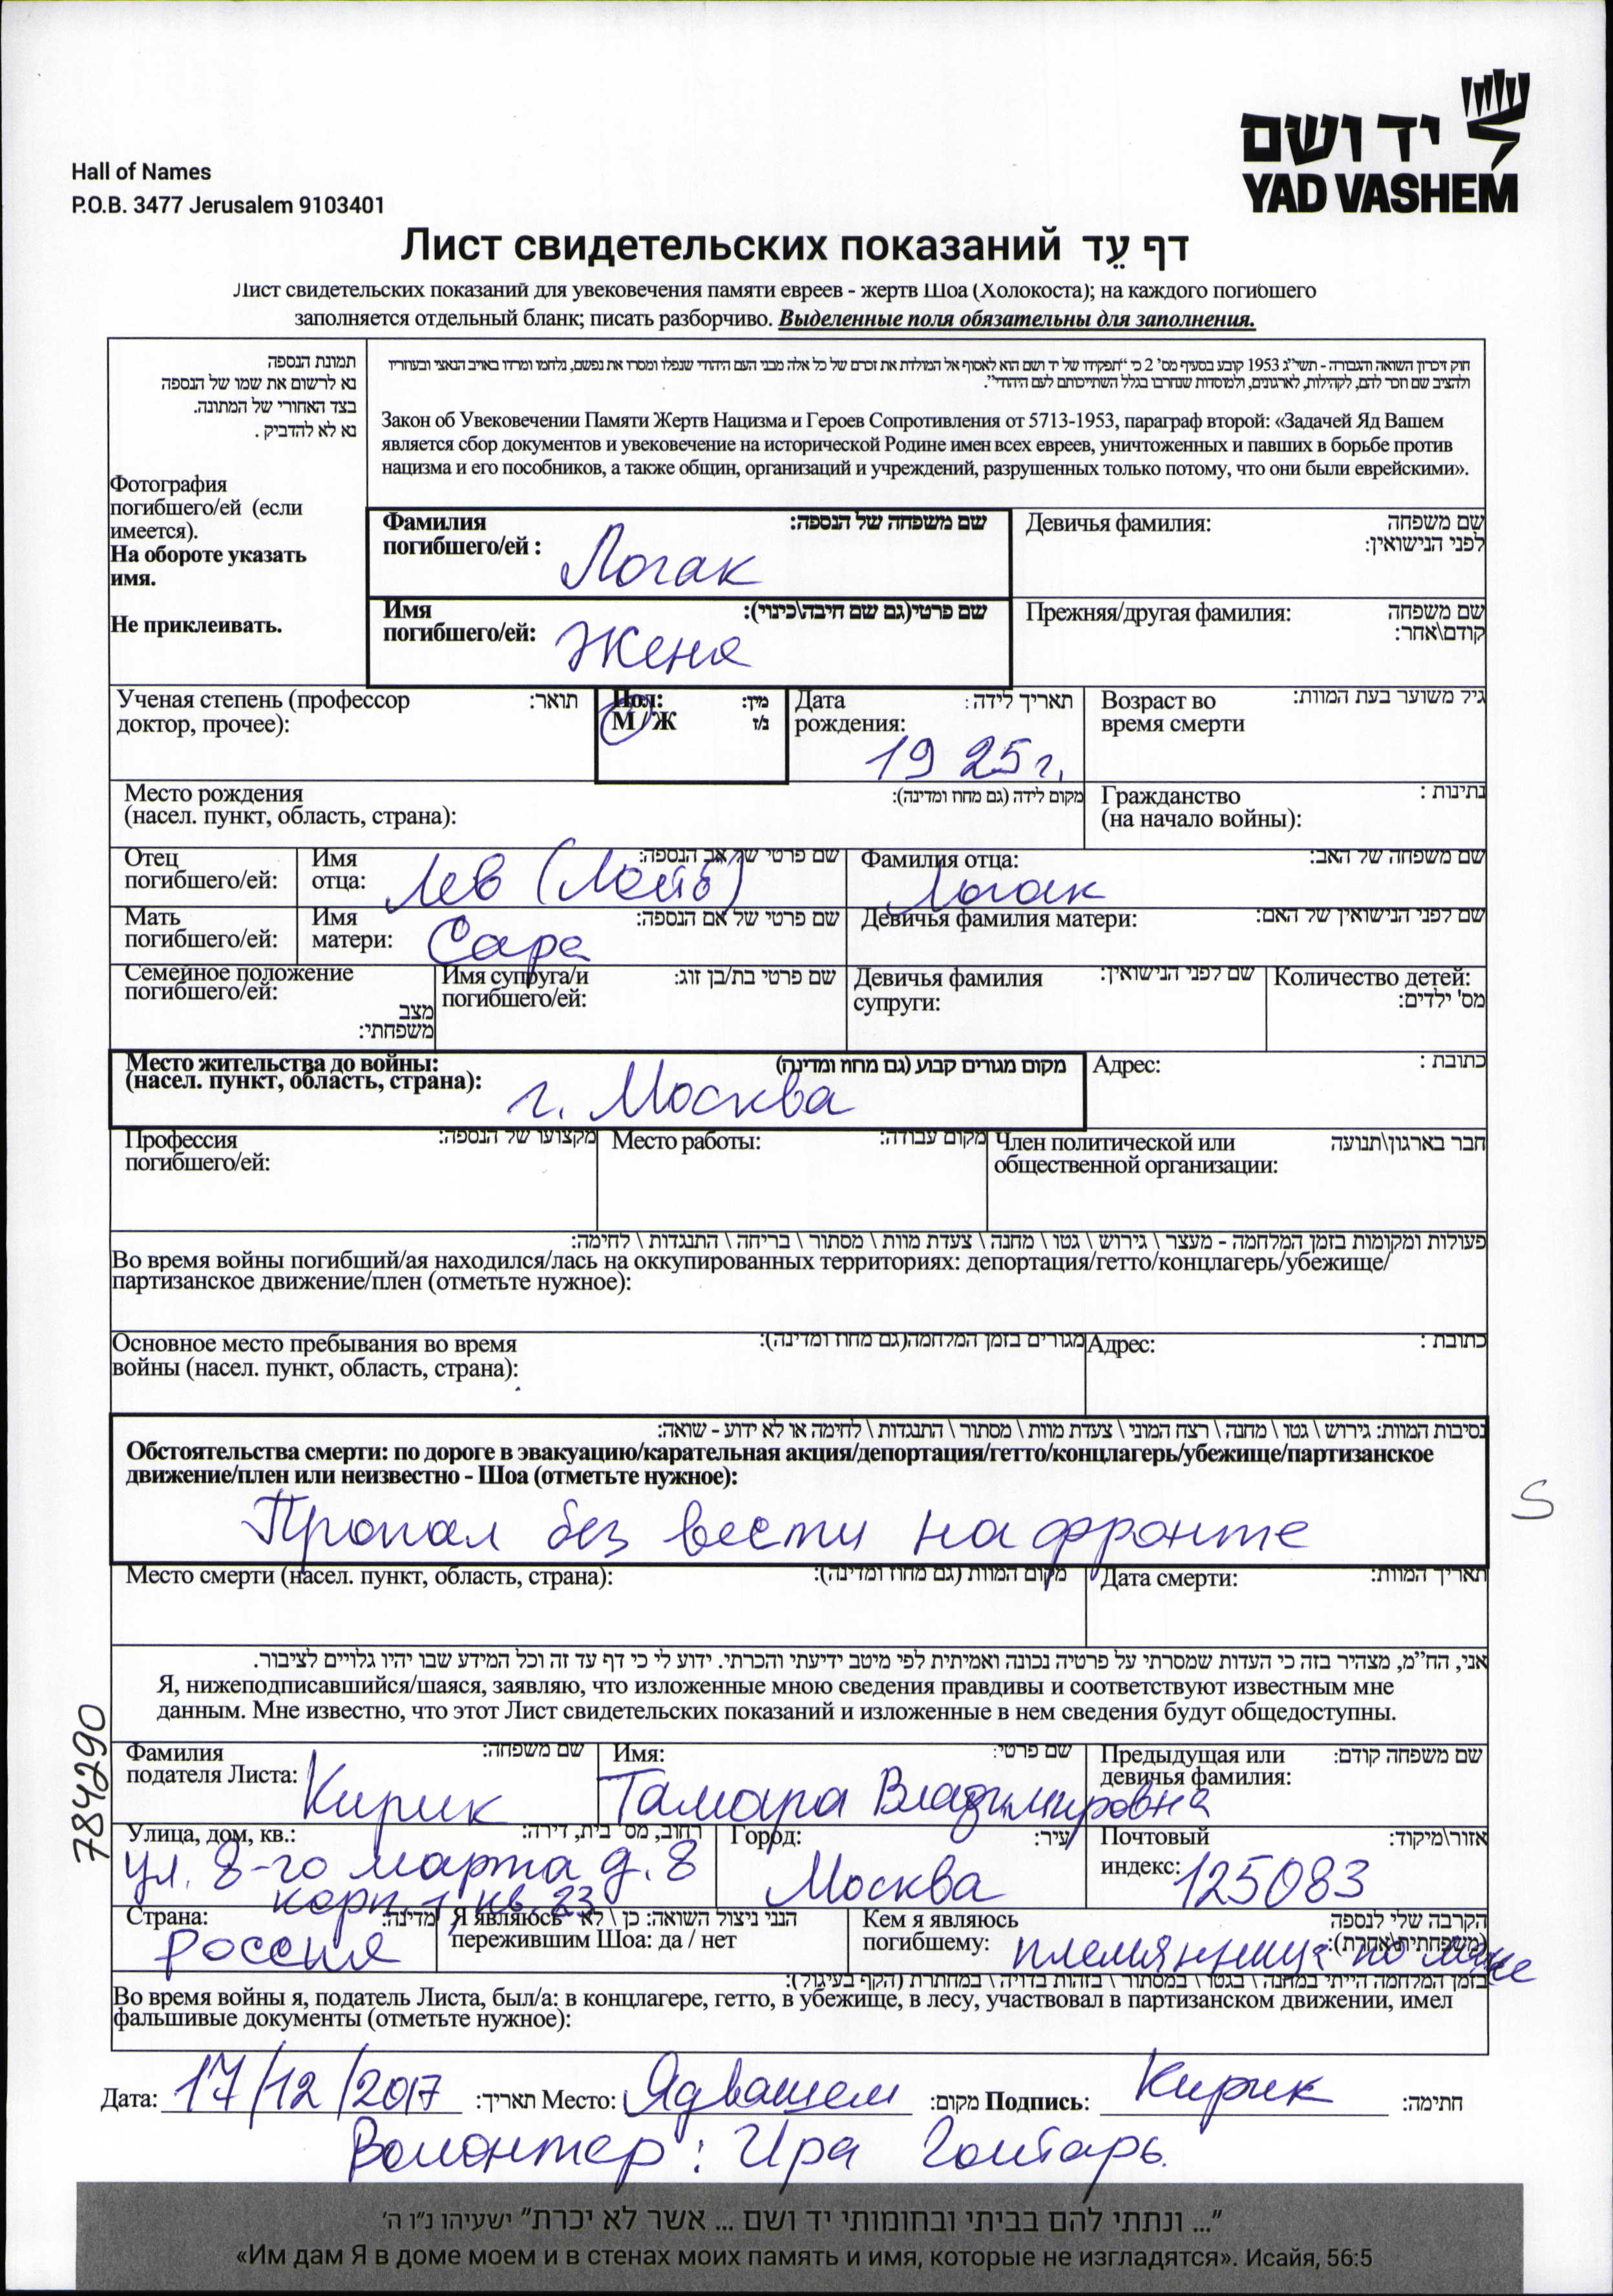 יד ושם
YAD VASHEM
Hall of Names
P.O.B. 3477 Jerusalem 9103401
Лист свидетельских показаний דף עֵד
Лист свидетельских показаний для увековечения памяти евреев - жертв Шоа (Холокоста); на каждого погибшего
заполняется отдельный бланк; писать разборчиво. Выделенные поля обязательны для заполнения.
תמונת הנספה
נא לרשום את שמו של הנספה
בצד האחורי של המתונה.
נא לא להדביק .
Фотография
погибшего/ей (если
имеется).
На обороте указать
имя.
Не приклеивать.
חוק זיכרון השואה והגבורה - תשי"ג 1953 קובע בסעיף מס' 2 כי "תפקידו של יד ושם הוא לאסוף אל המולדת את זכרם של כל אלה מבני העם היהודי שנפלו ומסרו את נפשם, נלחמו ומרדו באויב הנאצי ובעוזריו
ולהציב שם וזכר להם, לקהילות, לארגונים, ולמוסדות שנחרבו בגלל השתייכותם לעם היהודי".
Закон об Увековечении Памяти Жертв Нацизма и Героев Сопротивления от 5713-1953, параграф второй: «Задачей Яд Вашем
является сбор документов и увековечение на исторической Родине имен всех евреев, уничтоженных и павших в борьбе против
нацизма и его пособников, а также общин, организаций и учреждений, разрушенных только потому, что они были еврейскими».
Фамилия שם משפחה של הנספה:
погибшего/ей : Логак
Девичья фамилия: שם משפחה
לפני הנישואין:
Имя שם פרטי(גם שם חיבה\כינוי):
погибшего/ей: Женя
Прежняя/другая фамилия: שם משפחה
קודם\אחר:
Ученая степень (профессор תואר:
доктор, прочее):
Пол: מין:
М / Ж ז/נ
Дата תאריך לידה:
рождения: 1925г.
Возраст во גיל משוער בעת המוות:
время смерти
Место рождения מקום לידה (גם מחוז ומדינה):
(насел. пункт, область, страна):
Гражданство נתינות :
(на начало войны):
Отец
погибшего/ей:
Имя שם פרטי של אב הנספה:
отца: Лев (Лойб)
Фамилия отца: שם משפחה של האב:
Логак
Мать
погибшего/ей:
Имя שם פרטי של אם הנספה:
матери: Сара
Девичья фамилия матери: שם לפני הנישואין של האם:
Семейное положение
погибшего/ей:
מצב
משפחתי:
Имя супруга/и שם פרטי בת/בן זוג:
погибшего/ей:
Девичья фамилия שם לפני הנישואין:
супруги:
Количество детей:
מס' ילדים:
Место жительства до войны: מקום מגורים קבוע (גם מחוז ומדינה)
(насел. пункт, область, страна): г. Москва
Адрес: כתובת :
Профессия מקצועו של הנספה:
погибшего/ей:
Место работы: מקום עבודה:
Член политической или חבר בארגון\תנועה
общественной организации:
פעולות ומקומות בזמן המלחמה - מעצר \ גירוש \ גטו \ מחנה \ צעדת מוות \ מסתור \ בריחה \ התנגדות \ לחימה:
Во время войны погибший/ая находился/лась на оккупированных территориях: депортация/гетто/концлагерь/убежище/
партизанское движение/плен (отметьте нужное):
Основное место пребывания во время מגורים בזמן המלחמה(גם מחוז ומדינה):
войны (насел. пункт, область, страна):
Адрес: כתובת :
נסיבות המוות: גירוש \ גטו \ מחנה \ רצח המוני \ צעדת מוות \ מסתור \ התנגדות \ לחימה או לא ידוע - שואה:
Обстоятельства смерти: по дороге в эвакуацию/карательная акция/депортация/гетто/концлагерь/убежище/партизанское
движение/плен или неизвестно - Шоа (отметьте нужное):
Пропал без вести на фронте
S
Место смерти (насел. пункт, область, страна): מקום המוות (גם מחוז ומדינה):
Дата смерти: תאריך המוות:
אני, הח"מ, מצהיר בזה כי העדות שמסרתי על פרטיה נכונה ואמיתית לפי מיטב ידיעתי והכרתי. ידוע לי כי דף עד זה וכל המידע שבו יהיו גלויים לציבור.
Я, нижеподписавшийся/шаяся, заявляю, что изложенные мною сведения правдивы и соответствуют известным мне
данным. Мне известно, что этот Лист свидетельских показаний и изложенные в нем сведения будут общедоступны.
784290
Фамилия שם משפחה:
подателя Листа: Кирик
Имя: שם פרטי:
Тамара Владимировна
Предыдущая или שם משפחה קודם:
девичья фамилия:
Улица, дом, кв.: רחוב, מס' בית, דירה:
ул. 8-го марта д. 8
корп. 1, кв. 23
Город: עיר:
Москва
Почтовый אזור\מיקוד:
индекс: 125083
Страна: מדינה:
Россия
Я являюсь הנני ניצול השואה: כן \ לא
пережившим Шоа: да / нет
Кем я являюсь הקרבה שלי לנספה
погибшему: (משפחתית\אחרת):
племянница по муже
בזמן המלחמה הייתי במחנה \ בגטו \ במסתור \ בזהות בדויה \ במחתרת (הקף בעיגול):
Во время войны я, податель Листа, был/а: в концлагере, гетто, в убежище, в лесу, участвовал в партизанском движении, имел
фальшивые документы (отметьте нужное):
Дата: 17/12/2017 תאריך: Место: Яд вашем מקום: Подпись: Кирик חתימה:
Волонтер: Ира Гонтарь.
"... ונתתי להם בביתי ובחומותי יד ושם ... אשר לא יכרת" ישעיהו נ"ו ה'
«Им дам Я в доме моем и в стенах моих память и имя, которые не изгладятся». Исайя, 56:5